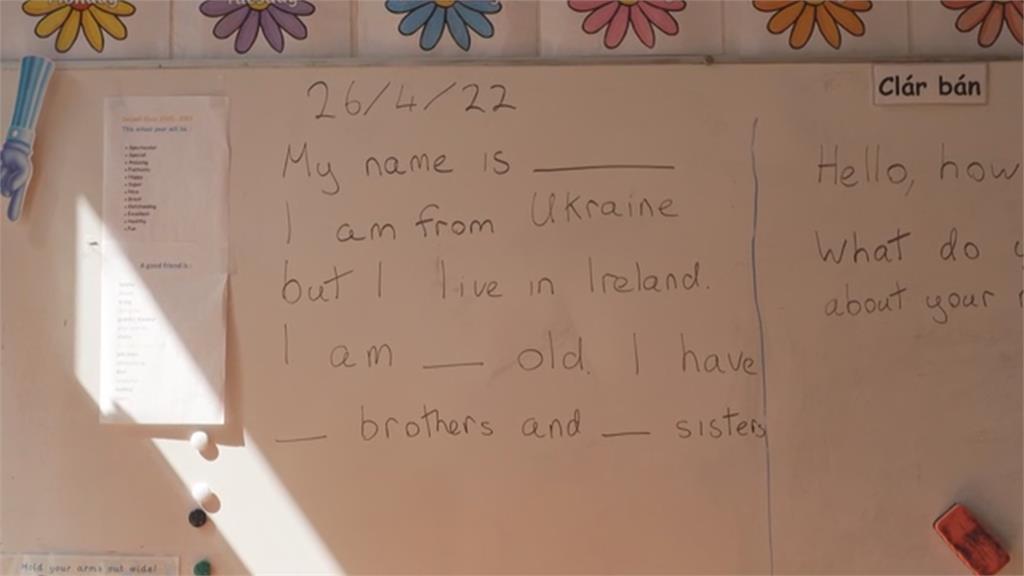 Monday
Tuesday
Clár bán
26/4/22
My name is ______
I am from Ukraine
but I live in Ireland.
I am __ old. I have
__ brothers and __ sisters
Hello, how
What do y
about your
This school year will be
Spectacular
Special
Amazing
Fantastic
Happy
Super
Nice
Great
Outstanding
Excellent
Healthy
Fun
A good friend is :
Hold your arms out wide!